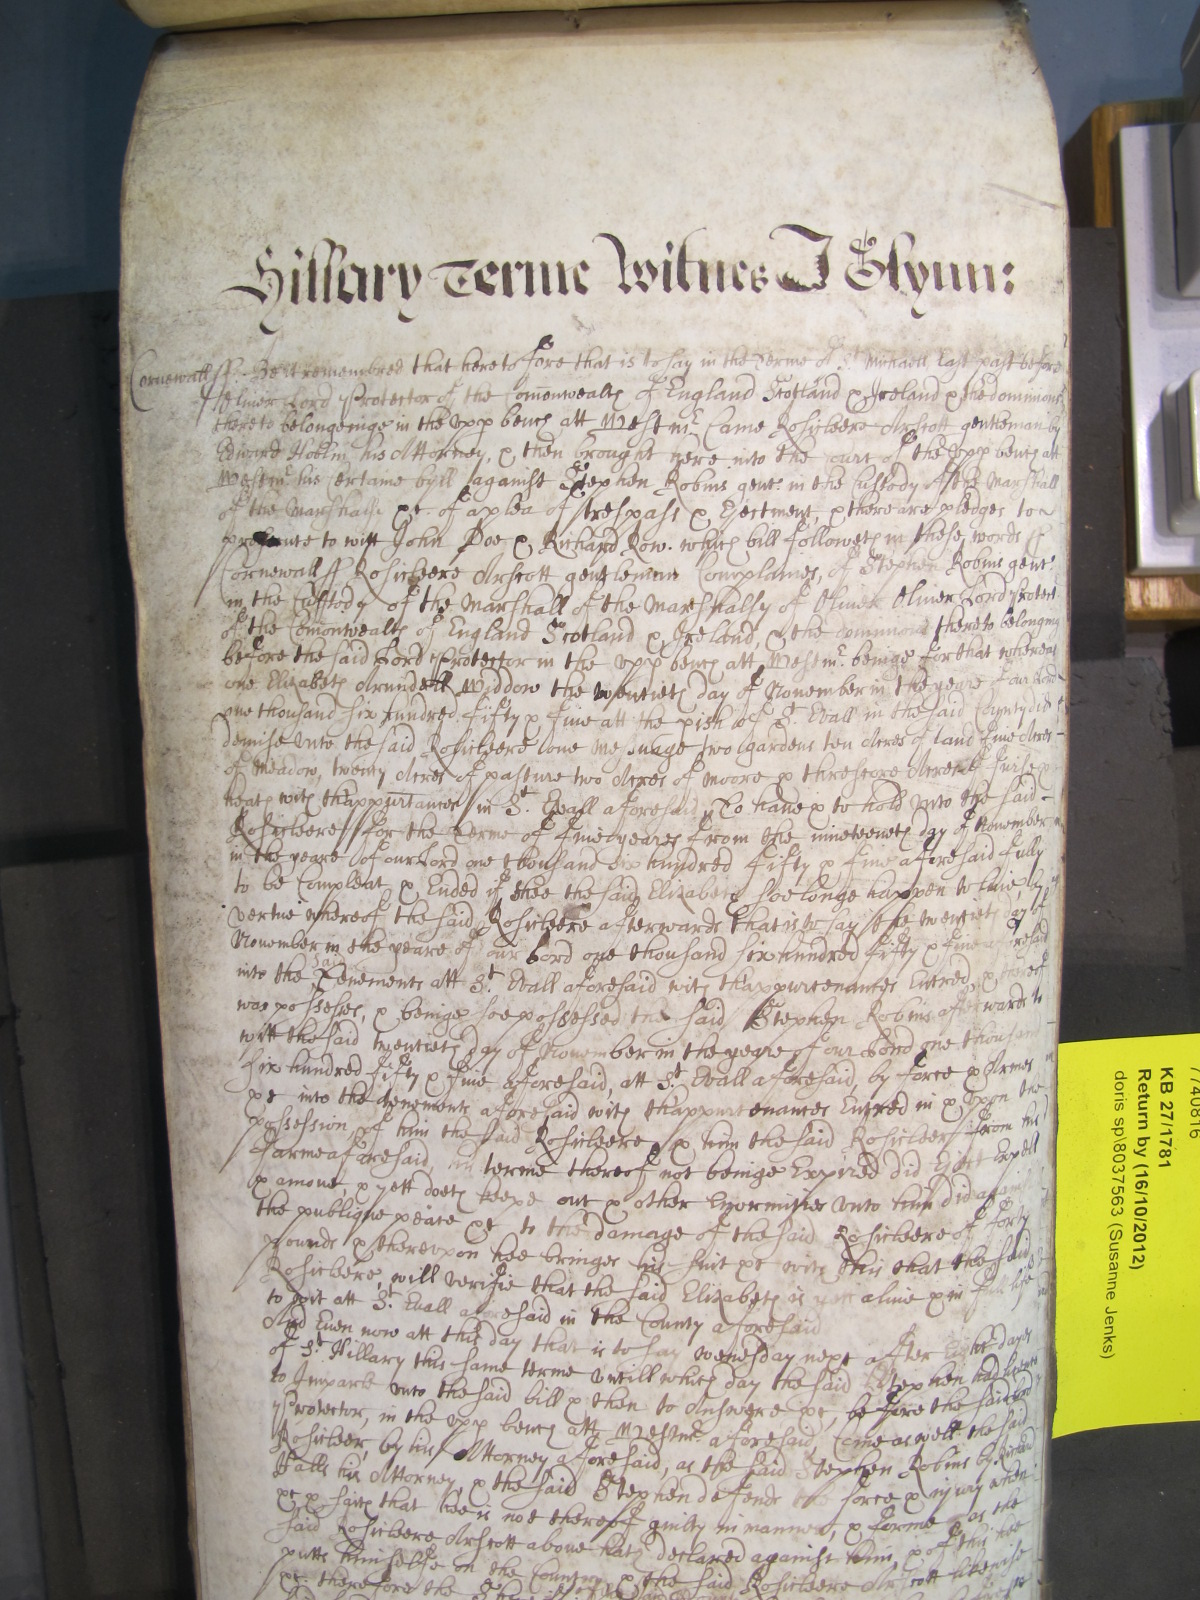 Hillary Terme Witnes J Glynn:
Cornewall ss. Be it remembred that heretofore that is to say in the Terme of St. Michaell last past before
Oliver Lord Protector of the Comonwealth of England Scotland & Ireland & the dominions
thereto belongeinge in the upp bench att Westmr. Came Rosicleere Arscott gentleman by
Edward Hoblin his Attorney, & then brought here into the Court of the upp bench att
Westmr. his certaine byll against Stephen Robins gent. in the custody of the Marshall
of the Marshalsie &c. of a plea of trespass & Ejectment, & there are pledges to
prosecute to witt John Doe & Richard Row. which bill followeth in these words ss
Cornewall ss Rosicleere Arscott gentleman Complaines, of Stephen Robins gent.
in the Custody of the Marshall of the Marshalsy of Oliver Lord Protect
of the Comonwealth of England Scotland & Ireland, & the dominions thereto belonging
before the said Lord Protector in the upp bench att Westmr. beinge for that whereas
one Elizabeth Arundell Widdow the twentieth day of November in the yeare of our Lord
one thousand six hundred fifty & five att the pish of St. Evall in the said County did
demise unto the said Rosicleere one messuage two gardens ten Acres of land five Acres
of Meadow, twenty Acres of pasture two Acres of moore & threscore Acres of furse &
heath with thappurtances in St. Evall aforesaid, To have & to hold unto the said
Rosicleere for the terme of five yeares from the nineteenth day of November
in the yeare of our Lord one thousand six hundred fifty & five aforesaid fully
to be Compleat & Ended if shee the said Elizabeth soe longe happen to live, by
vertue whereof the said Rosicleere afterwards that is to say the twentieth day of
November in the yeare of our Lord one thousand six hundred fifty & five aforesaid
into the said Tenements att St. Evall aforesaid with thappurtenances Entred, & thereof
was possessed, & beinge soe possessed the said Stephen Robins afterwards to
witt the said twentieth day of November in the yeare of our Lord one thousand
six hundred fifty & five aforesaid, att St. Evall aforesaid, by force & Armes
&c into the tenements aforesaid with thappurtenances Entred in & upon the
possession of him the said Rosicleere & him the said Rosicleere from his
farme aforesaid, his terme thereof not beinge Expired did Eject Expell
& amove & yett doeth keepe out & other Enormities unto him did against
the publique peace &c to the damage of the said Rosicleere of forty
pounds & thereupon hee bringes his suit &c with this that the said
Rosicleere will verifie that the said Elizabeth is yett alive & in full life
to witt att St. Evall aforesaid in the County aforesaid
And Even now att this day that is to say wensday next after Eight dayes
of St. Hillary this same terme untill which day the said Stephen had leave
to Imparle unto the said bill & then to Answere &c, before the said Lord
Protector, in the upp bench att Westmr. aforesaid, Come as well the said
Rosicleer, by his Attorney aforesaid, as the said Stephen Robins by Richard
Halls his Attorney, & the said Stephen defends the force & injury when
&c & saith that hee is not thereof guilty in manner, & forme as the
said Rosicleere Arscott above hath declared against him, & of this hee
putts himselfe on the Country & the said Rosicleere Arscott likewise
&c. therefore the
7740816
KB 27/1781
Return by (16/10/2012)
doris sp\8037563 (Susanne Jenks)